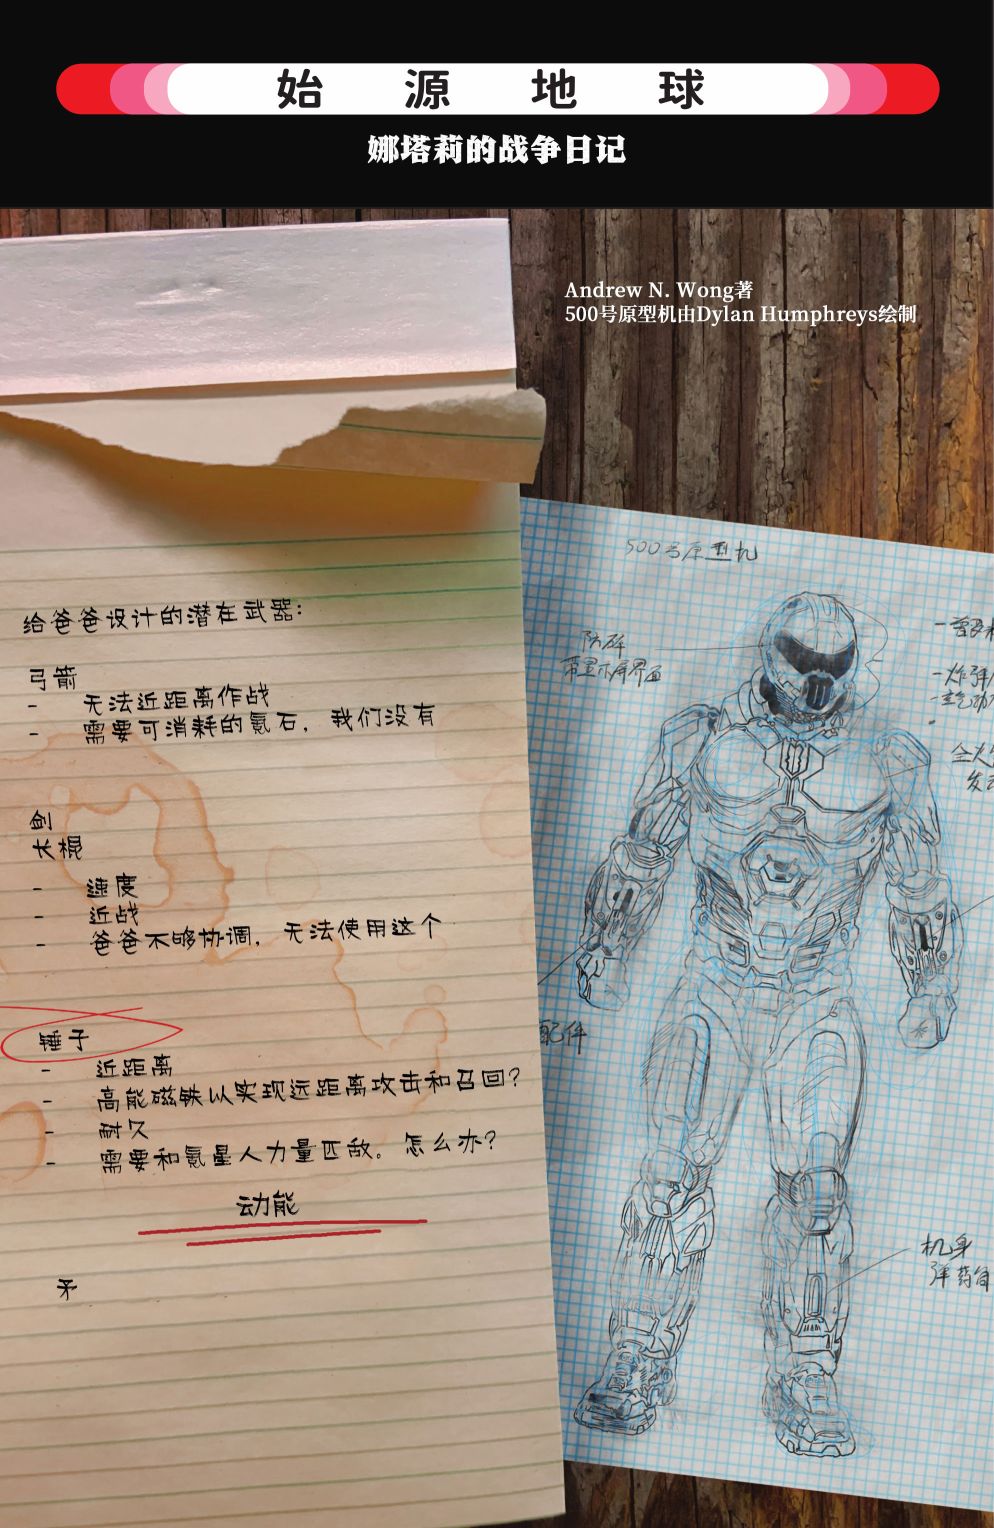 始源地球
娜塔莉的战争日记
Andrew N. Wong著
500号原型机由Dylan Humphreys绘制
给爸爸设计的潜在武器：
弓箭
- 无法近距离作战
- 需要可消耗的氪石，我们没有
剑
长棍
- 速度
- 近战
- 爸爸不够协调，无法使用这个
锤子
- 近距离
- 高能磁铁以实现远距离攻击和召回？
- 耐久
- 需要和氪星人力量匹敌。怎么办？
动能
矛
500号原型机
防碎
带显示屏界面
配件
机身
弹药